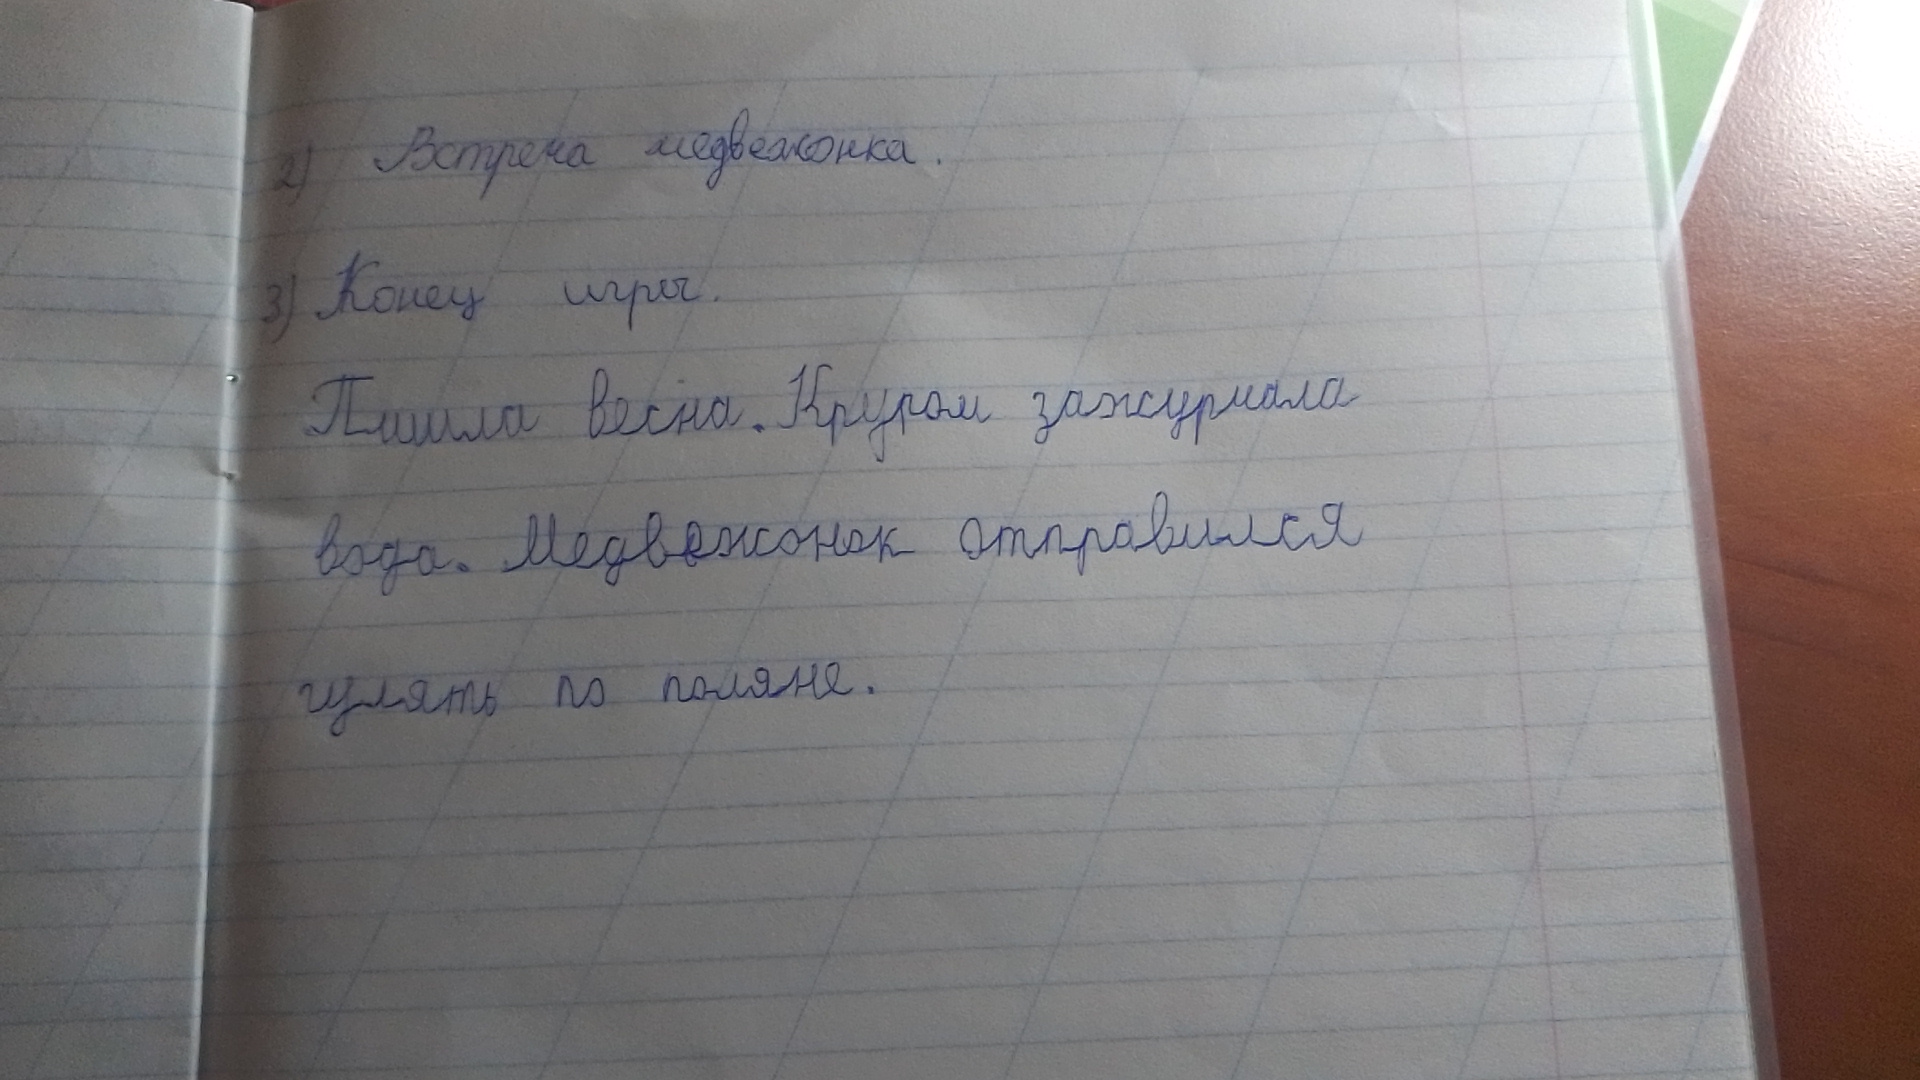 2) Встреча медвежонка.
3) Конец игры.
Пишла весна. Кругом зажурчала
вода. Медвежонок отправился
гулять по поляне.